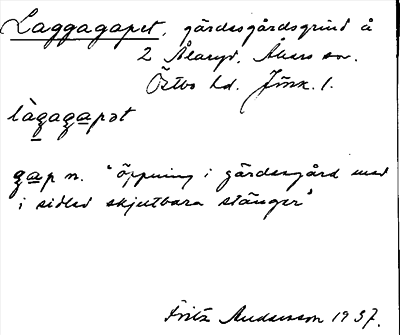 Laggagapet, gärdesgårdsgrind å
2 Ålaryd, Åkers sn.
Östbo hd. Jönk. l.
làgagapət
gap n. "öppning i gärdesgård med
i sidled skjutbara stänger"
Fritz Andersson 1937.